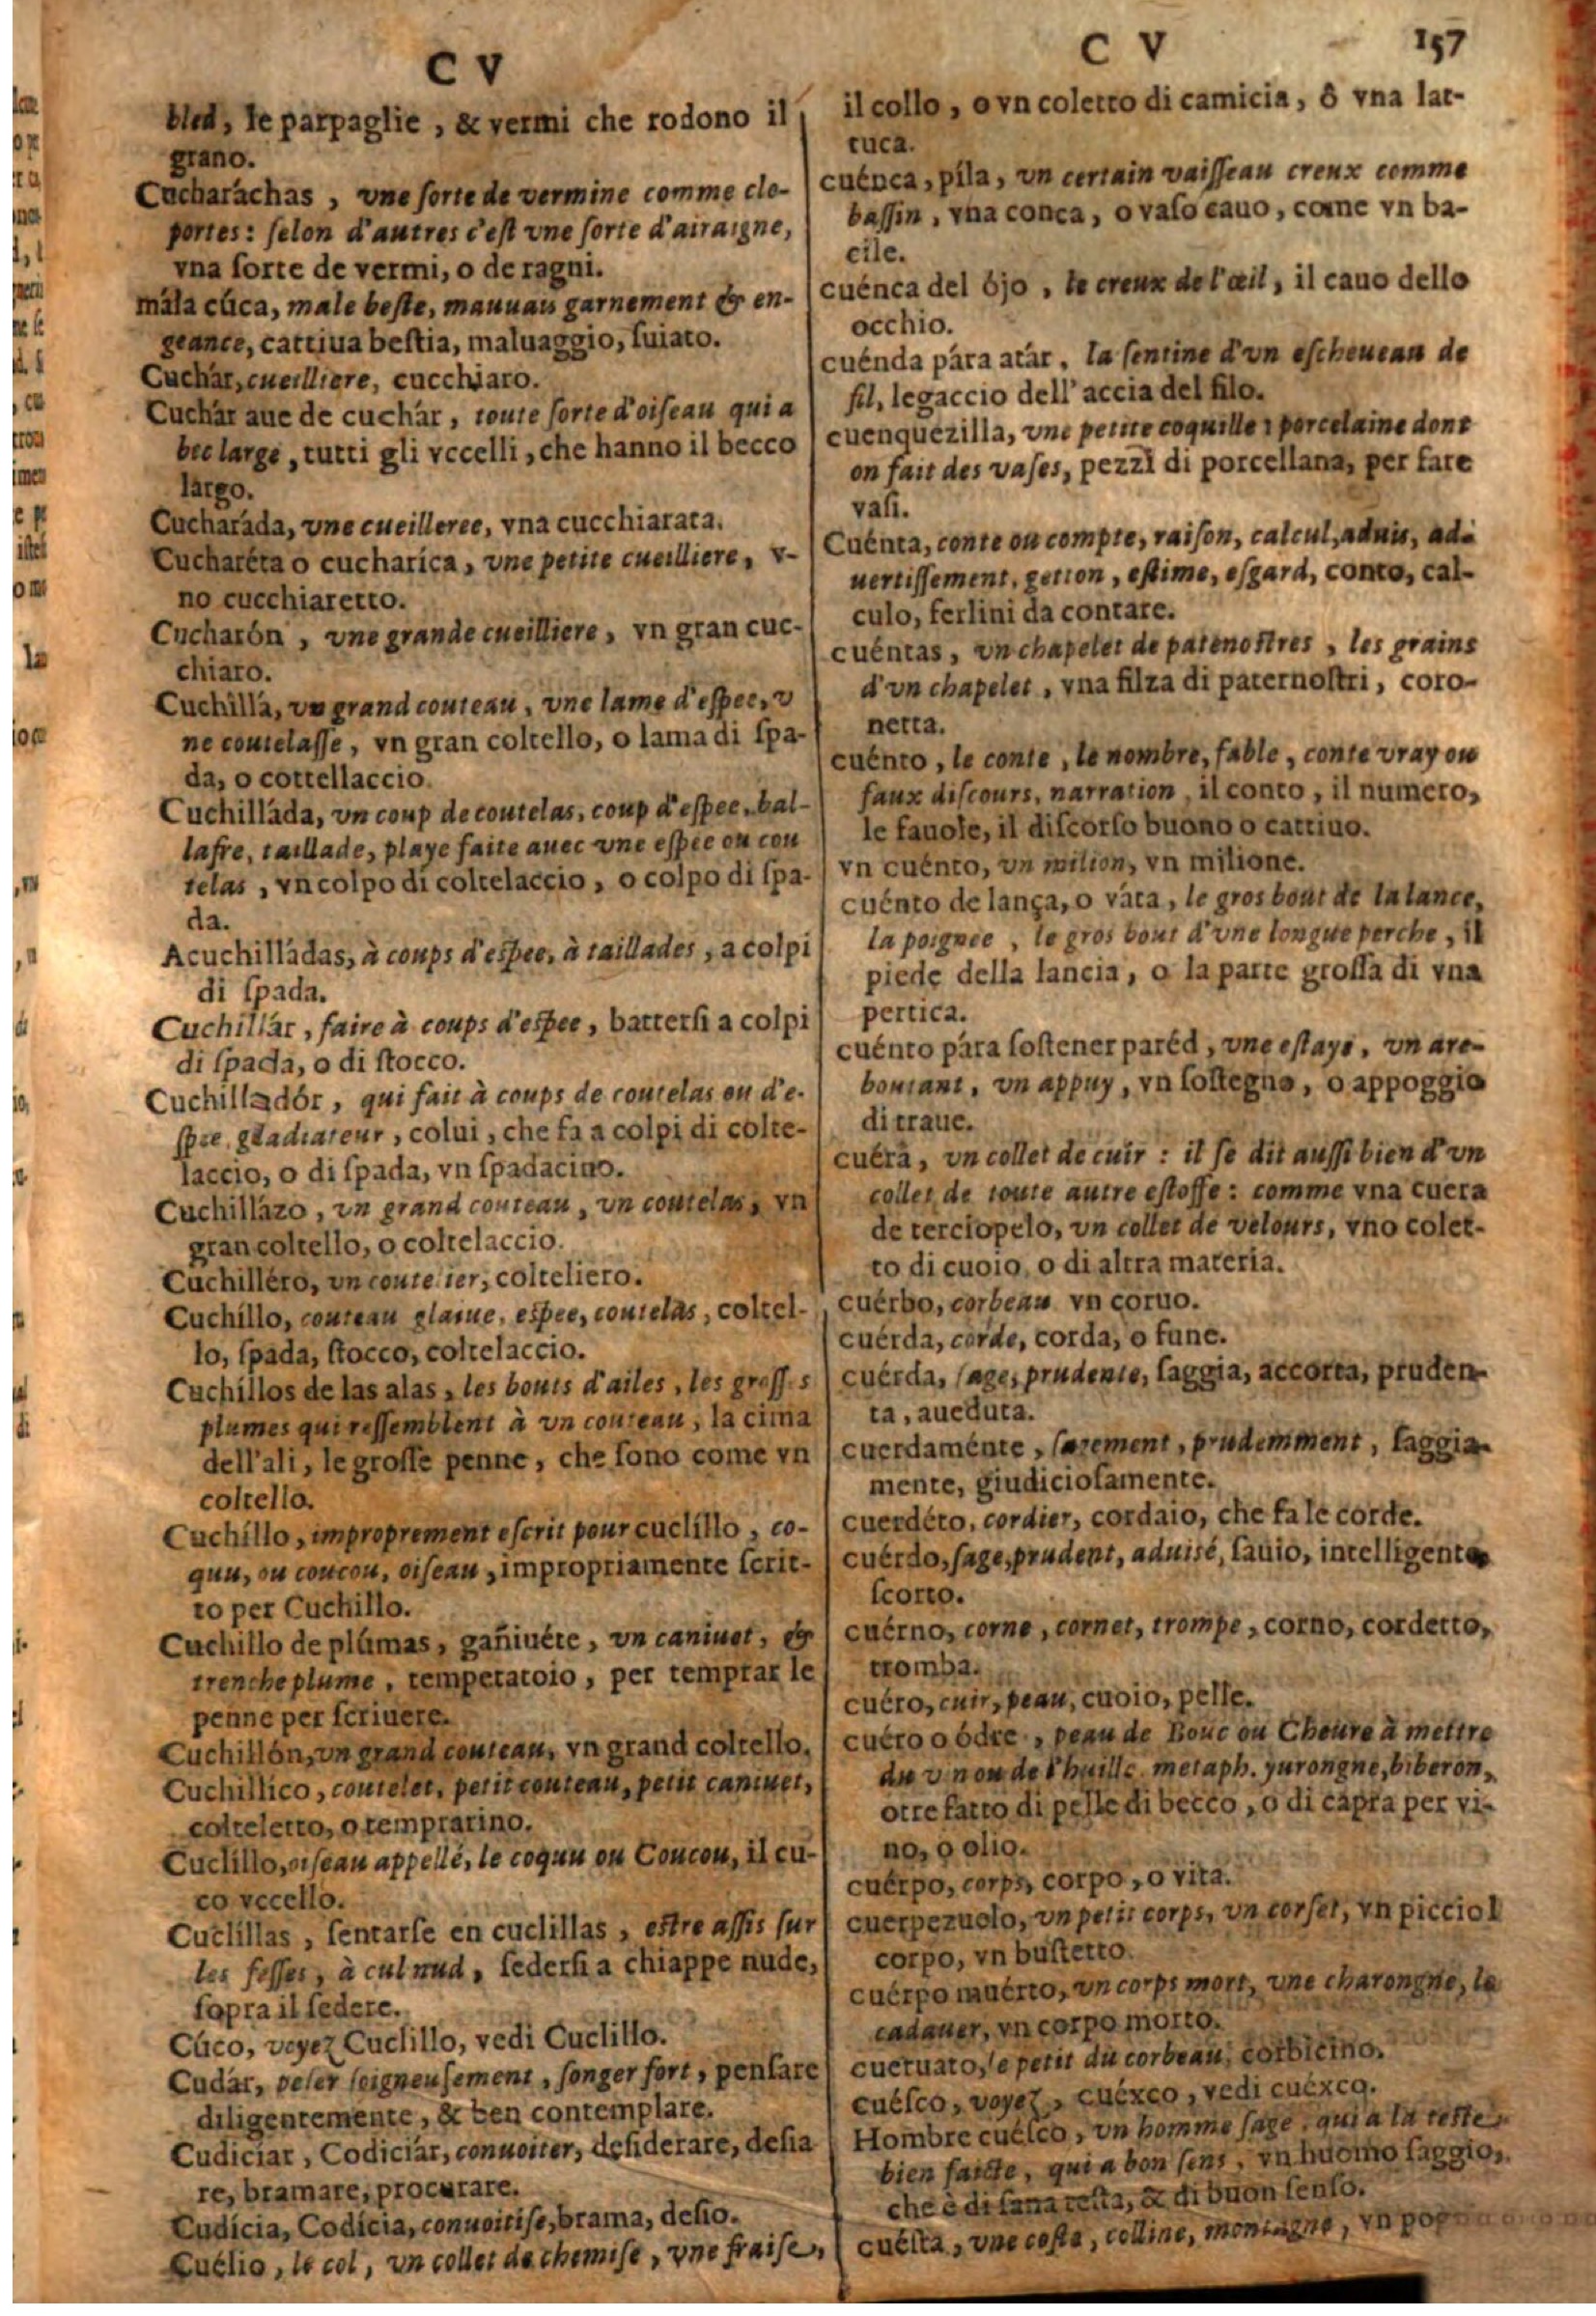 C V
bled, le parpaglie, & vermi che rodono il
grano.
Cucharáchas, vne ſorte de vermine comme clo-
portes: ſelon d'autres c'eſt vne ſorte d'airaigne,
vna ſorte de vermi, o de ragni.
mála cúca, male beſte, mauuais garnement & en-
geance, cattiua beſtia, maluaggio, ſuiato.
Cuchár, cueilliere, cucchiaro.
Cuchár aue de cuchár, toute ſorte d'oiſeau qui a
bec large, tutti gli vccelli, che hanno il becco
largo.
Cucharáda, vne cueilleree, vna cucchiarata.
Cucharéta o cucharíca, vne petite cueilliere, v-
no cucchiaretto.
Cucharón, vne grande cueilliere, vn gran cuc-
chiaro.
Cuchillá, vn grand couteau, vne lame d'eſpee, v
ne coutelaſſe, vn gran coltello, o lama di ſpa-
da, o cottellaccio.
Cuchilláda, vn coup de coutelas, coup d'eſpee, bal-
lafre, taillade, playe faite auec vne eſpee ou cou
telas, vn colpo di coltelaccio, o colpo di ſpa-
da.
Acuchilládas, à coups d'eſpee, à taillades, a colpi
di ſpada.
Cuchillár, faire à coups d'eſpee, batterſi a colpi
di ſpada, o di ſtocco.
Cuchilladór, qui fait à coups de coutelas ou d'e-
ſpee, gladiateur, colui, che fa a colpi di colte-
laccio, o di ſpada, vn ſpadacino.
Cuchillázo, vn grand couteau, vn coutelas, vn
gran coltello, o coltelaccio.
Cuchilléro, vn coutelier, colteliero.
Cuchíllo, couteau glaiue, eſpee, coutelas, coltel-
lo, ſpada, ſtocco, coltelaccio.
Cuchíllos de las alas, les bouts d'ailes, les groſſes
plumes qui reſſemblent à vn couteau, la cima
dell'ali, le groſſe penne, che ſono come vn
coltello.
Cuchíllo, improprement eſcrit pour cuclíllo, co-
quu, ou coucou, oiſeau, impropriamente ſcrit-
to per Cuchillo.
Cuchíllo de plúmas, gañiuéte, vn caniuet, &
trencheplume, temperatoio, per temprar le
penne per ſcriuere.
Cuchillón, vn grand couteau, vn grand coltello.
Cuchillíco, coutelet, petit couteau, petit caniuet,
colteletto, o temprarino.
Cuclíllo, oiſeau appellé, le coquu ou Coucou, il cu-
co vccello.
Cuclíllas, ſentarſe en cuclillas, eſtre aſſis ſur
les feſſes, à cul nud, ſederſi a chiappe nude,
ſopra il ſedere.
Cúco, voyez Cuclillo, vedi Cuclillo.
Cudár, peſer ſoigneuſement, ſonger fort, penſare
diligentemente, & ben contemplare.
Cudiciar, Codiciár, conuoiter, deſiderare, deſia
re, bramare, procurare.
Cudícia, Codícia, conuoitiſe, brama, deſio.
Cuélio, le col, vn collet de chemiſe, vne fraiſe,
C V 157
il collo, o vn coletto di camicia, ô vna lat-
tuca.
cuénca, píla, vn certain vaiſſeau creux comme
baſſin, vna conca, o vaſo cauo, come vn ba-
cile.
cuénca del ójo, le creux de l'œil, il cauo dello
occhio.
cuénda pára atár, la ſentine d'vn eſcheueau de
fil, legaccio dell'accia del filo.
cuenquezilla, vne petite coquille; porcelaine dont
on fait des vaſes, pezzi di porcellana, per fare
vaſi.
Cuénta, conte ou compte, raiſon, calcul, aduis, ad-
uertiſſement, getton, eſtime, eſgard, conto, cal-
culo, ferlini da contare.
cuéntas, vn chapelet de patenoſtres, les grains
d'vn chapelet, vna filza di paternoſtri, coro-
netta.
cuénto, le conte, le nombre, fable, conte vray ou
faux diſcours, narration, il conto, il numero,
le fauole, il diſcorſo buono o cattiuo.
vn cuénto, vn milion, vn milione.
cuénto de lança, o vára, le gros bout de la lance,
la poignee, le gros bout d'vne longue perche, il
piede della lancia, o la parte groſſa di vna
pertica.
cuénto pára ſoſtener paréd, vne eſtaye, vn arc-
boutant, vn appuy, vn ſoſtegno, o appoggio
di traue.
cuérá, vn collet de cuir: il ſe dit auſſi bien d'vn
collet de toute autre eſtoffe: comme vna cuera
de terciopelo, vn collet de velours, vno colet-
to di cuoio, o di altra materia.
cuérbo, corbeau vn coruo.
cuérda, corde, corda, o fune.
cuérda, ſage, prudente, ſaggia, accorta, pruden-
ta, aueduta.
cuerdaménte, ſagement, prudemment, ſaggia-
mente, giudicioſamente.
cuerdéto, cordier, cordaio, che fa le corde.
cuérdo, ſage, prudent, aduiſé, ſauio, intelligente
ſcorto.
cuérno, corne, cornet, trompe, corno, cordetto,
tromba.
cuéro, cuir, peau, cuoio, pelle.
cuéro o ódre, peau de Bouc ou Cheure à mettre
du vin ou de l'huille. metaph. yurongne, biberon,
otre fatto di pelle di becco, o di capra per vi-
no, o olio.
cuérpo, corps, corpo, o vita.
cuerpezuelo, vn petit corps, vn corſet, vn picciol
corpo, vn buſtetto.
cuérpo muérto, vn corps mort, vne charongne, le
cadauer, vn corpo morto.
cueruato, le petit du corbeau, corbicino.
cuéſco, voyez, cuéxco, vedi cuéxco.
Hombre cuéſco, vn homme ſage, qui a la teſte
bien faicte, qui a bon ſens, vn huomo ſaggio,
che è di ſana teſta, & di buon ſenſo.
cuéſta, vne coſte, colline, montagne, vn